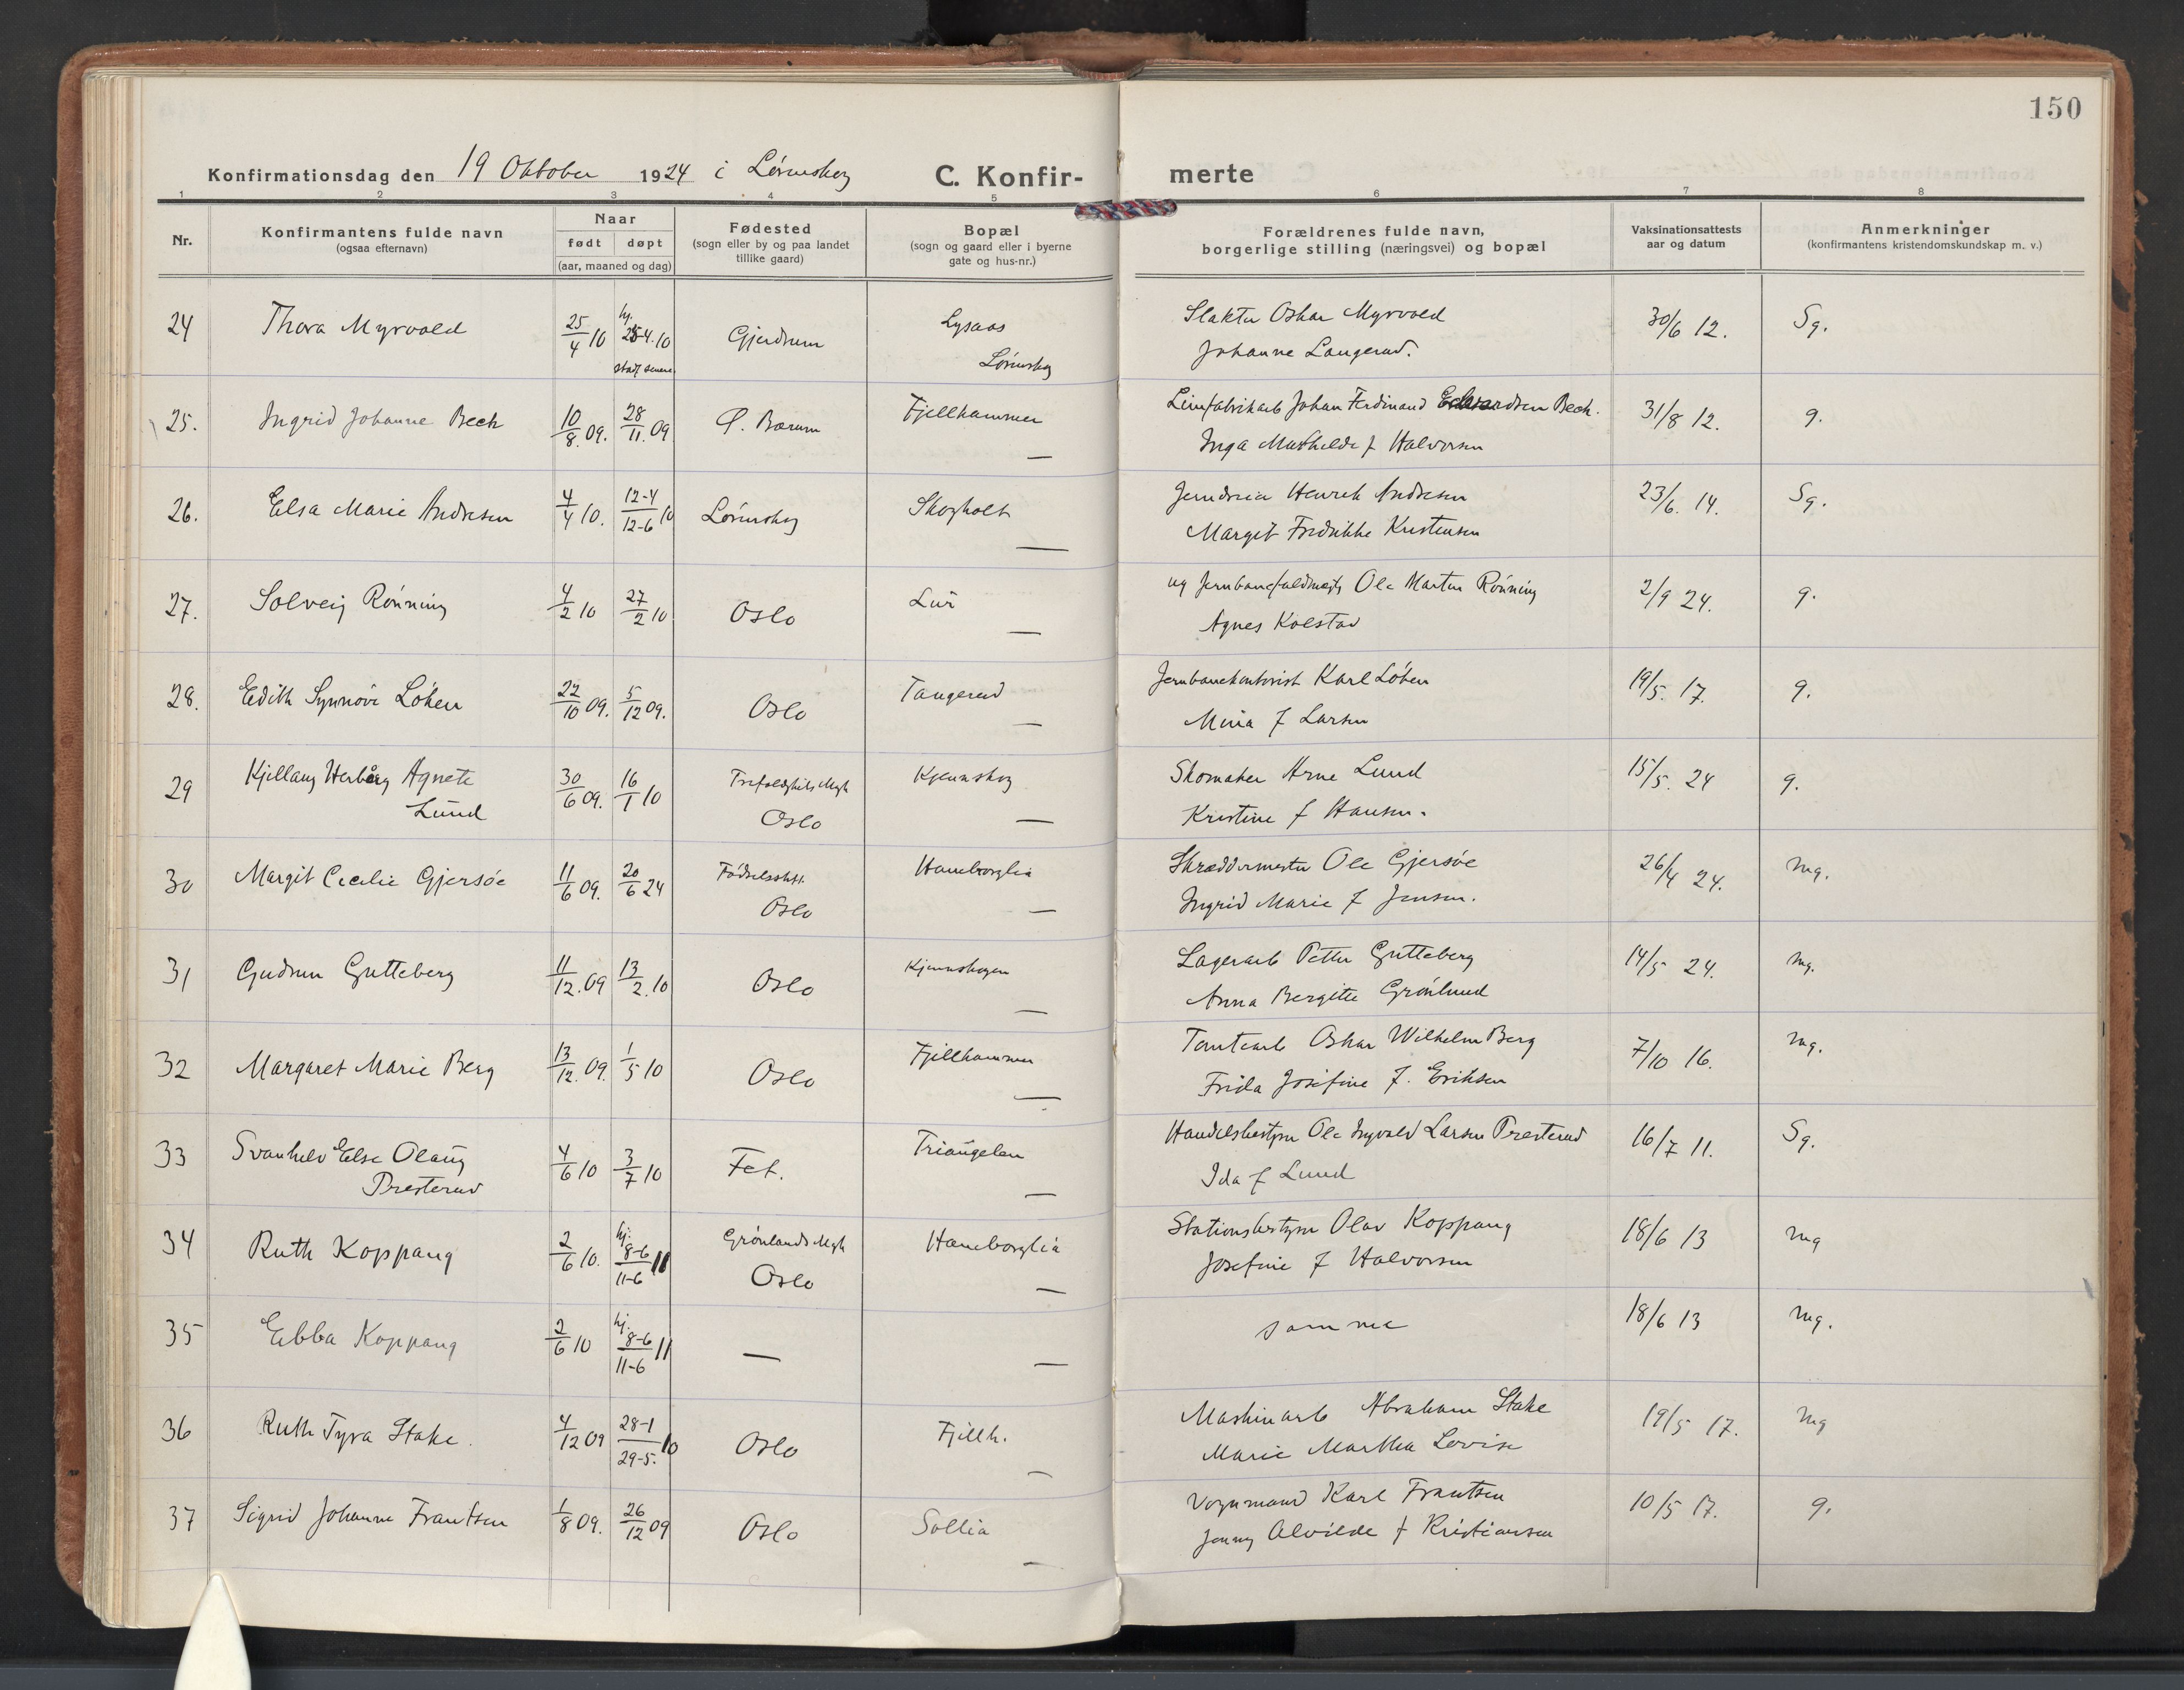 150
Konfirmationsdag den 19 Oktober 1924 i Lörenskog C. Konfir- merte
1 2 3 4 5 6 7 8
Nr.
Konfirmantens fulde navn
(ogsaa efternavn)
Naar
født døpt
(aar, maaned og dag)
Fødested
(sogn eller by og paa landet
tillike gaard)
Bopæl
(sogn og gaard eller i byerne
gate og hus-nr.)
Forældrenes fulde navn,
borgerlige stilling (næringsvei) og bopæl
Vaksinationsattests
aar og datum
Anmerkninger
(konfirmantens kristendomskundskap m. v.)
24 Thora Myrvold 25/4 10 hj. 25-4.10 Gjerdrum Lysaas Lörenskog Slakter Oskar Myrvold 30/6 12. Sg.
stadf senere Johanne Langerud.
25. Ingrid Johanne Bech 10/8. 09. 28/11. 09 Ö. Bærum Fjellhammer Limfabrikarb Johan Ferdinand Bech. 31/8 12. g.
— Inga Mathilde f Halvorsen
26. Elsa Marie Andresen 4/4 10. 12-4/12-6 10 Lörenskog Skogholt Jerndreier Henrik Andresen 23/6. 14. Sg.
— Margit Fredrikke Kristensen
27. Solveig Rönning 4/2 10 27/2 10 Oslo Lur Ole Martin Rönning 2/9 24. g.
— Agnes Kolstad
28. Edith Synnöve Löken 22/10 09. 5/12 09. Oslo Tangerud Jernbanekontorist Karl Löken 19/5. 17. g.
— Mina f Larsen
29 Kjellaug Herbårg Agnete Lund 30/6 09. 16/1 10 Trefoldighets Mgh Oslo Kjennskog Skomaker Arne Lund 15/5. 24 g.
— Kristine f Hansen.
30 Margit Cecilie Gjersöe 11/6 09. 20/6 24 Födselsstift. Oslo Haneborglia Skreddermester Ole Gjersöe 26/4 24. Mg.
— Ingrid Marie f Jensen.
31 Gudrun Gutteberg 11/12. 09 13/2. 10 Oslo Kjennskogen Lagerarb Petter Gutteberg 14/5 24. Mg.
— Anna Bergitte Grönlund
32 Margaret Marie Berg 13/12. 09. 1/5 10 Oslo Fjellhammer Tomtearb Oskar Wilhelm Berg 7/10 16. Mg.
— Frida Josefine f. Eriksen
33 Svanhild Else Olaug Presterud 4/6 10 3/7 10 Fet. Triangelen Handelsbestyrer Ole Ingvald Larsen Presterud 16/7 11. Sg.
— Ida f Lund
34 Ruth Koppang 2/6 10. hj. 8-6/11-6 11 Grönlands Mgh Oslo Haneborglia Stationsbestyrer Olav Koppang 18/6 13 Mg
— Josefine f Halvorsen
35 Ebba Koppang 2/6 10 hj. 8-6/11-6 11 — — samme 18/6 13 Mg.
36 Ruth Tyra Stake. 4/12 09 28-1/29-5. 10 Oslo Fjellh. Maskinarb Abraham Stake 19/5 17. Mg
— Marie Martha Lovise
37 Sigrid Johanne Frantsen 1/8 09. 26/12 09 Oslo Sollia Vognmand Karl Frantsen 10/5 17. g.
— Jenny Alvilde f Kristiansen